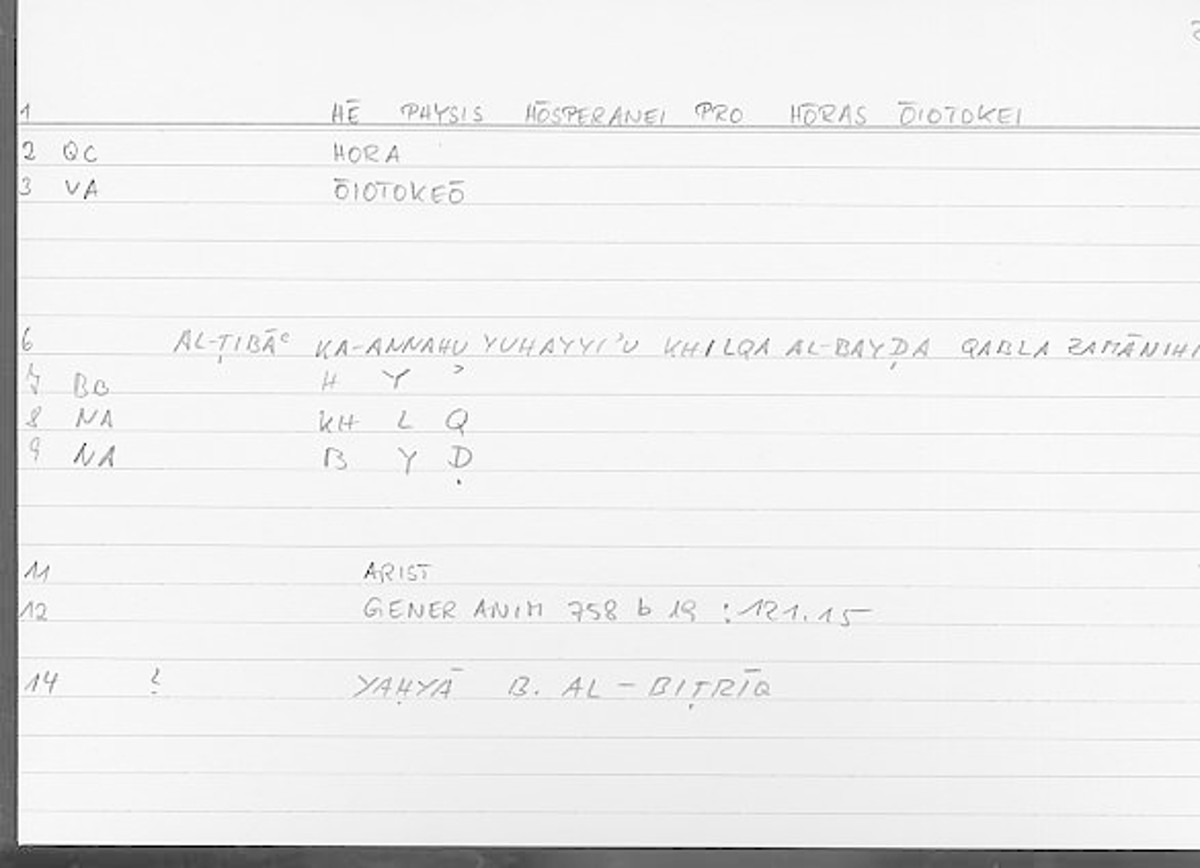 1 HĒ PHYSIS HŌSPERANEI PRO HŌRAS ŌIOTOKEI
2 QC HORA
3 VA ŌIOTOKEŌ
6 AL-ṬIBĀʿ KA-ANNAHU YUHAYYIʾU KHILQA AL-BAYḌA QABLA ZAMĀNIHI
7 BB H Y ʾ
8 NA KH L Q
9 NA B Y Ḍ
11 ARIST
12 GENER ANIM 758 b 19 : 121.15
14 ? YAḤYĀ B. AL-BIṬRĪQ